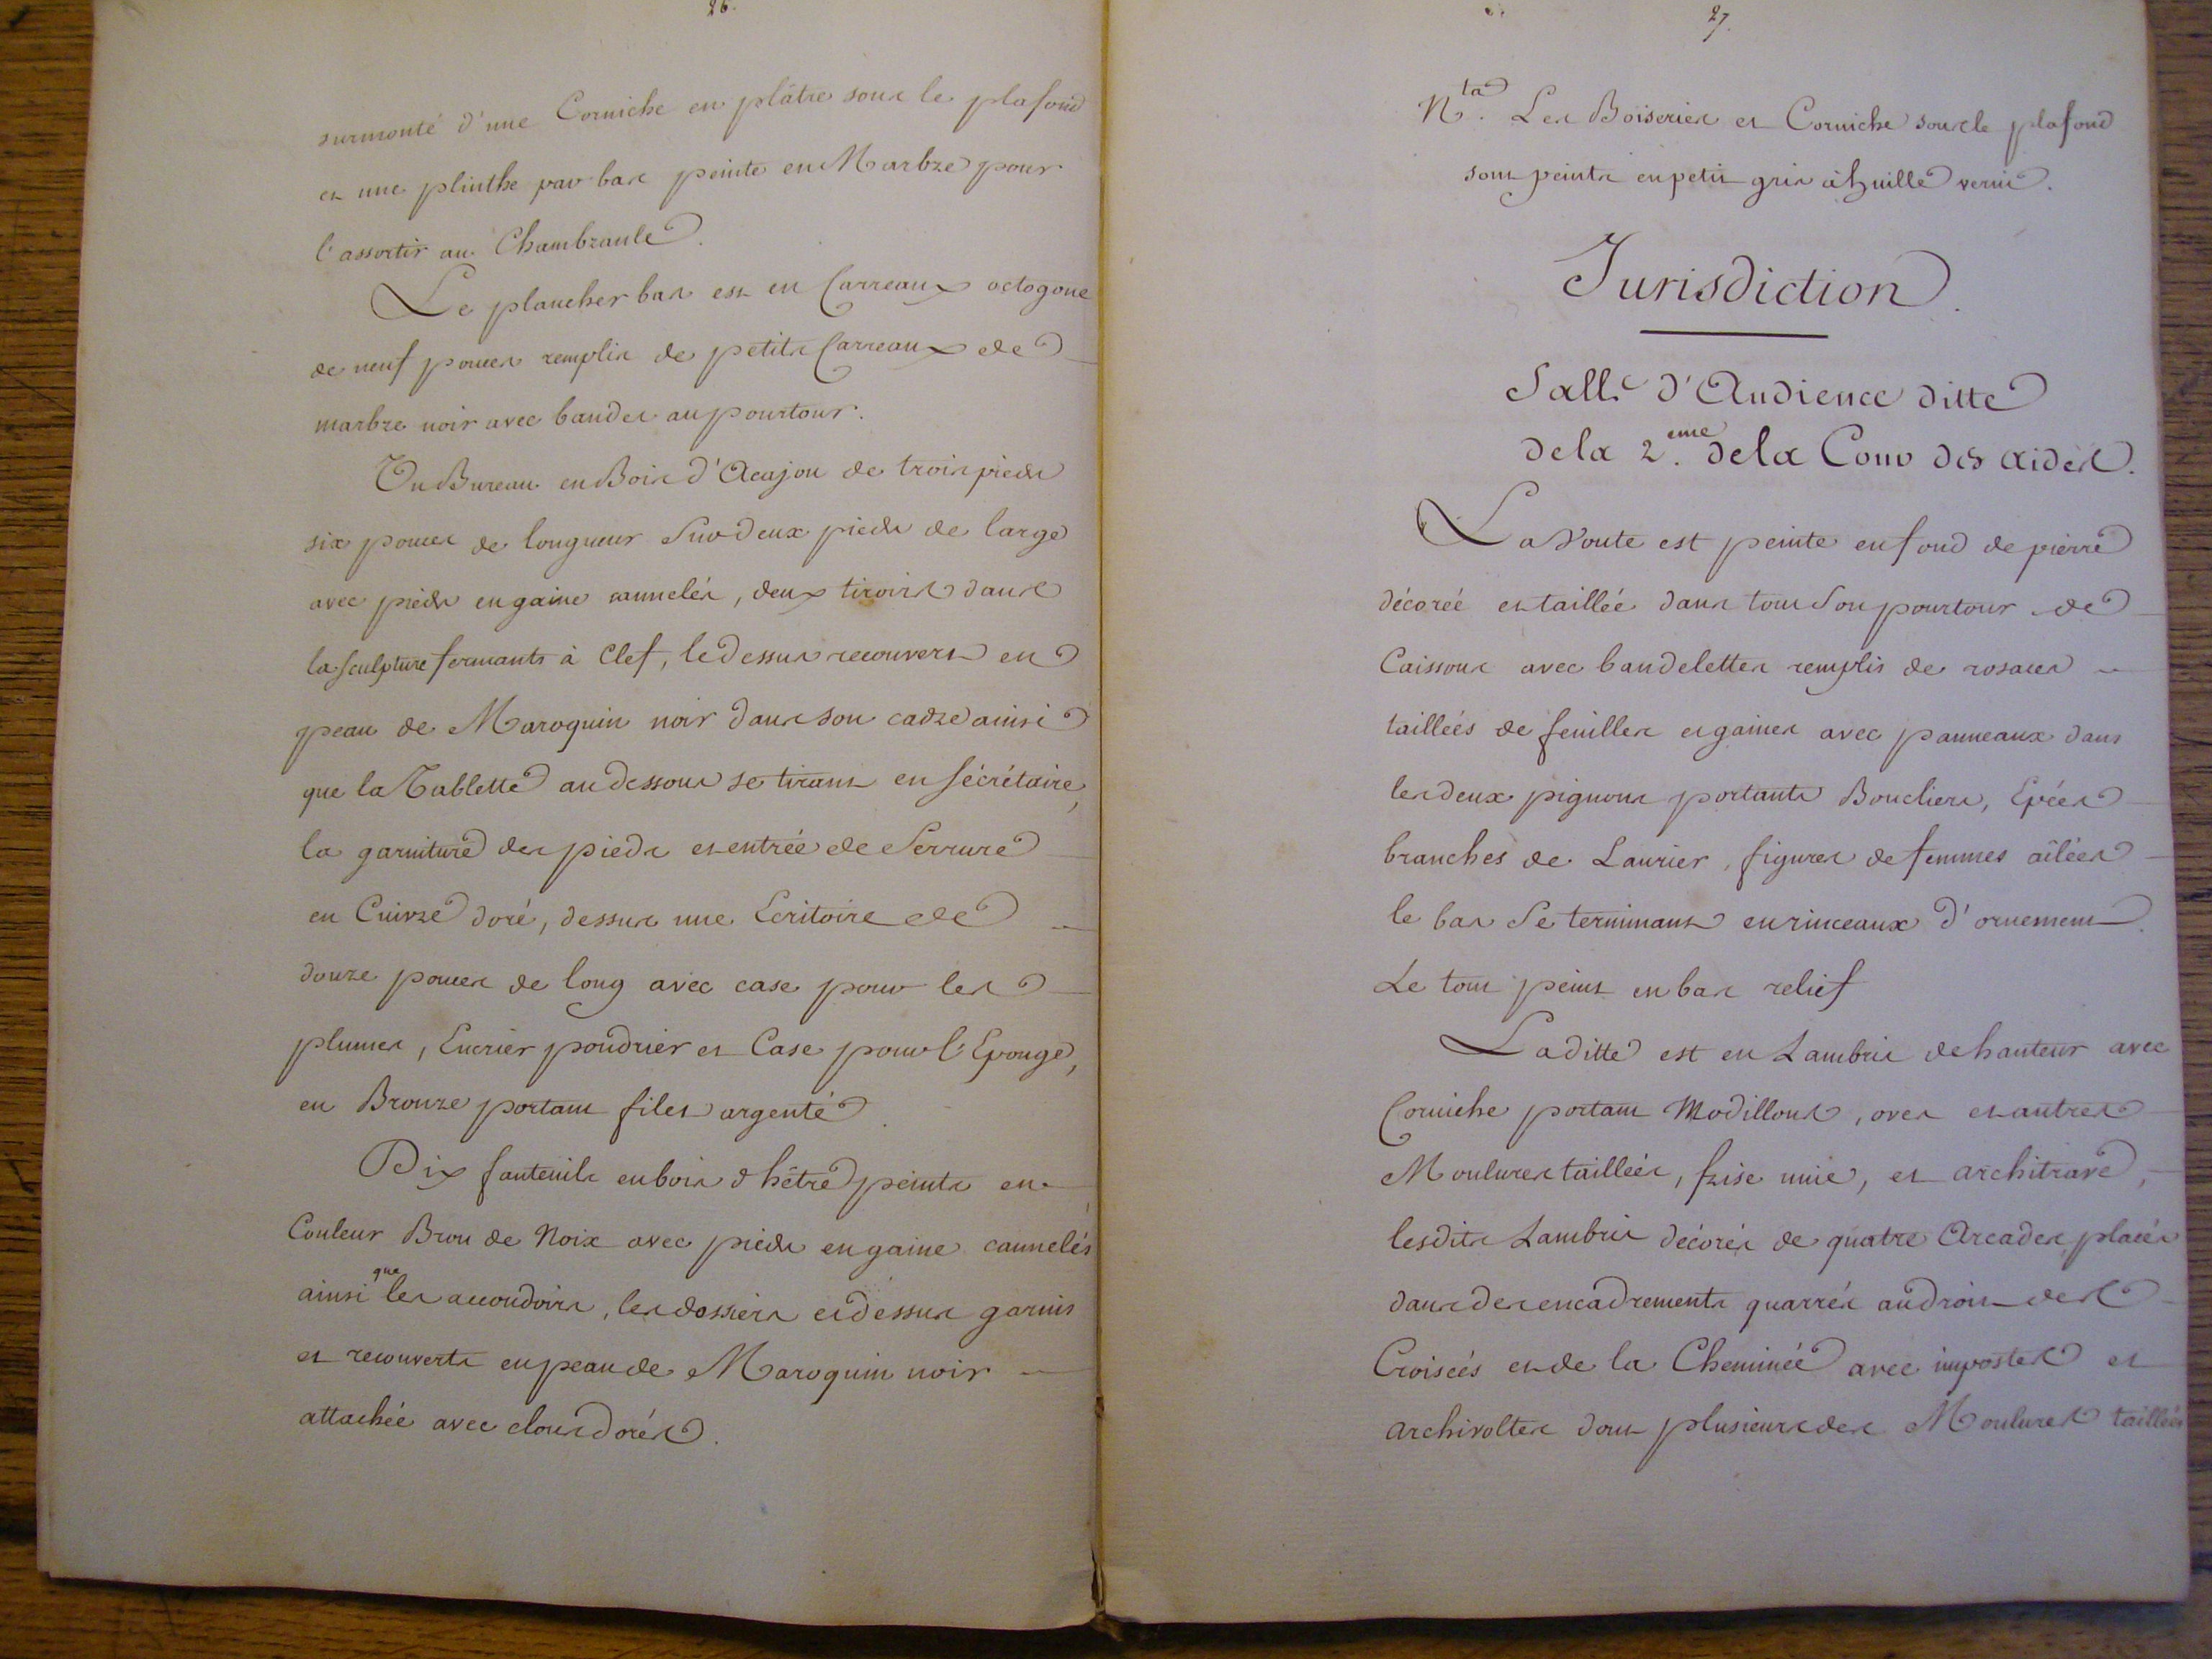 26.
surmonté d'une Corniche en plâtre sous le plafond
et une plinthe par bas peinte en Marbre pour
l'assortir au Chambranle.
Le plancher bas est en Carreaux octogone
de neuf pouces remplis de petits Carreaux de
marbre noir avec bandes au pourtour.
Un Bureau en Bois d'Acajou de trois pieds
six pouces de longueur Sur deux pieds de large
avec pieds en gaine cannelés, deux tiroirs dans
la sculpture fermants à Clef, le dessus recouvert en
peau de Maroquin noir dans son cadre ainsi
que la Tablette au dessous se tirant en sécrétaire,
la garniture des pieds et entrée de Serrure
en Cuivre doré, dessus une Ecritoire de
douze pouces de long avec case pour les
plumes, Encrier poudrier et Case pour l'Eponge,
en Bronze portant filet argenté.
Dix fauteuils en bois d'hêtre peints en
Couleur Brou de Noix avec pieds en gaine cannelés
ainsi que les accoudoirs, les dossiers et dessus garnis
et recouverts en peau de Maroquin noir
attachée avec clous dorés.
27.
Nta. Les Boiseries et Corniche sous le plafond
sont peints en petit gris à huille verni.
Jurisdiction.
Salle d'Audience ditte
de la 2.eme de la Cour des aides.
La Voute est peinte en fond de pierre
décoréé et taillée dans tout Son pourtour de
Caissons avec bandelettes remplis de rosaces
tailléés de feuilles et gaines avec panneaux dans
les deux pignons portants Boucliers, Epées
branches de Laurier, figures de femmes aîlées
le bas Se terminant en rinceaux d'ornement.
Le tout peint en bas relief
La ditte est en Lambris de hauteur avec
Corniche portant Modillons, oves et autres
Moulures taillées, frise unie, et architrave,
lesdits Lambris décorés de quatre Arcades placés
dans des encadrements quarrés au droit des
Croiséés et de la Cheminéé avec impostes et
archivoltes dont plusieurs des Moulures taillées